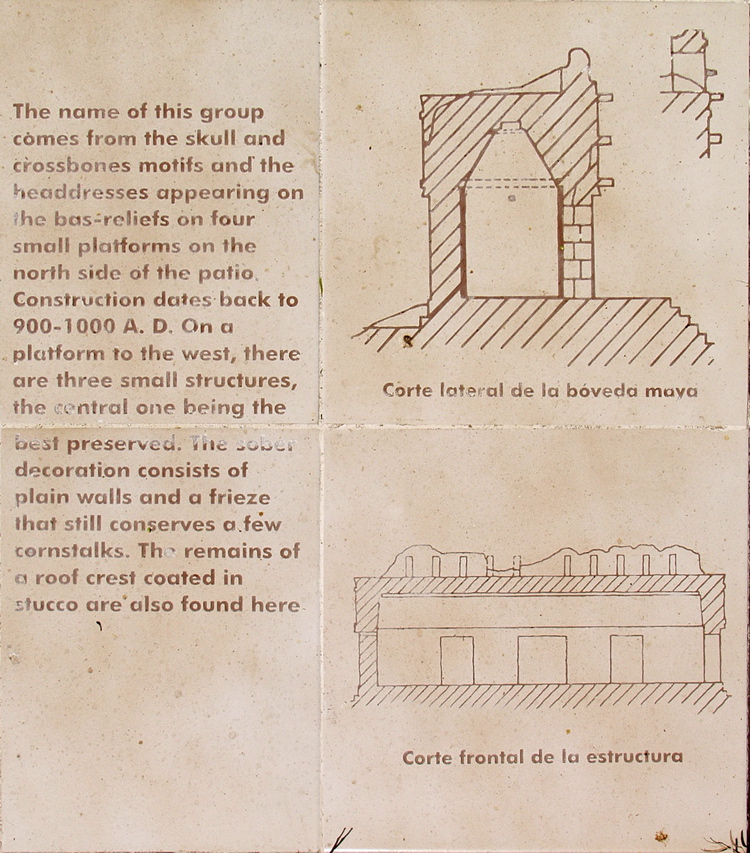 The name of this group
comes from the skull and
crossbones motifs and the
headdresses appearing on
the bas-reliefs on four
small platforms on the
north side of the patio.
Construction dates back to
900-1000 A. D. On a
platform to the west, there
are three small structures,
the central one being the
best preserved. The sober
decoration consists of
plain walls and a frieze
that still conserves a few
cornstalks. The remains of
a roof crest coated in
stucco are also found here
Corte lateral de la bóveda maya
Corte frontal de la estructura